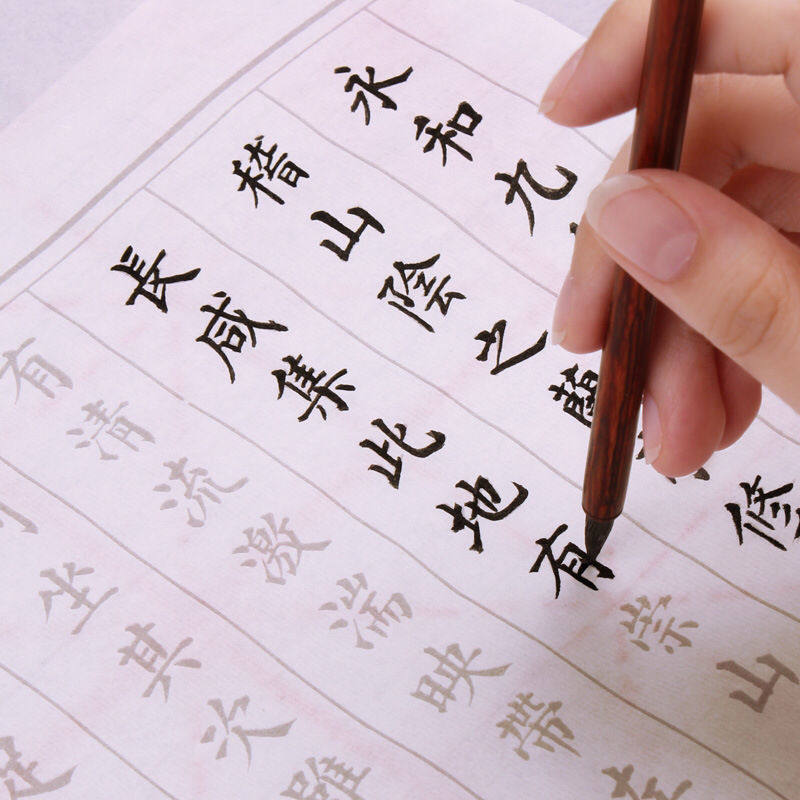 永和九
稽山陰之蘭修
長咸集此地有崇山
有清流激湍映帶左
坐其次雖
足